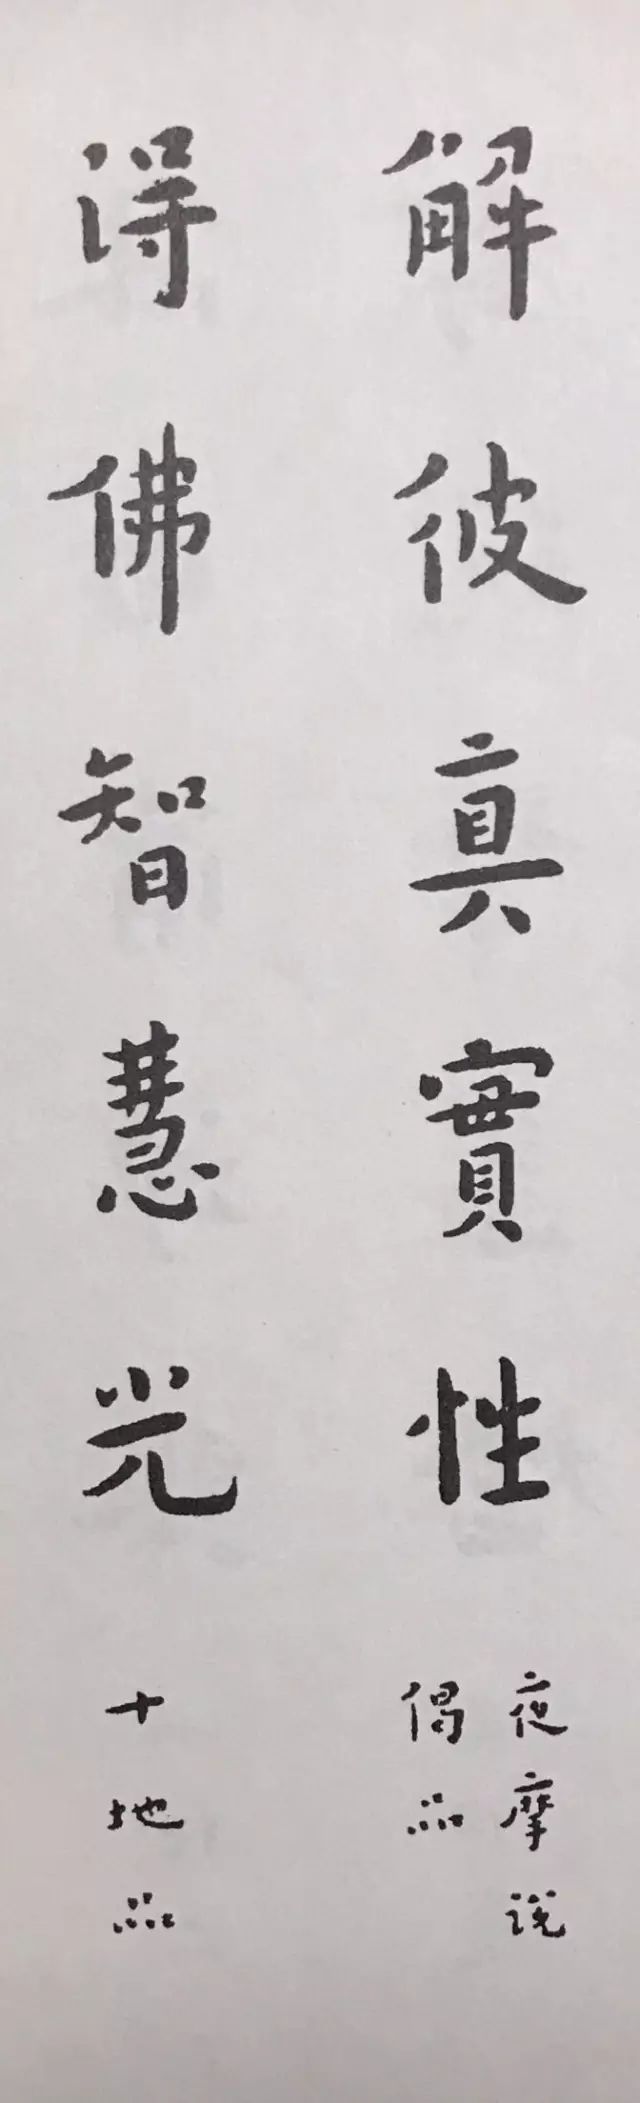 解彼真實性
夜摩說
偈品
得佛智慧光
十地品